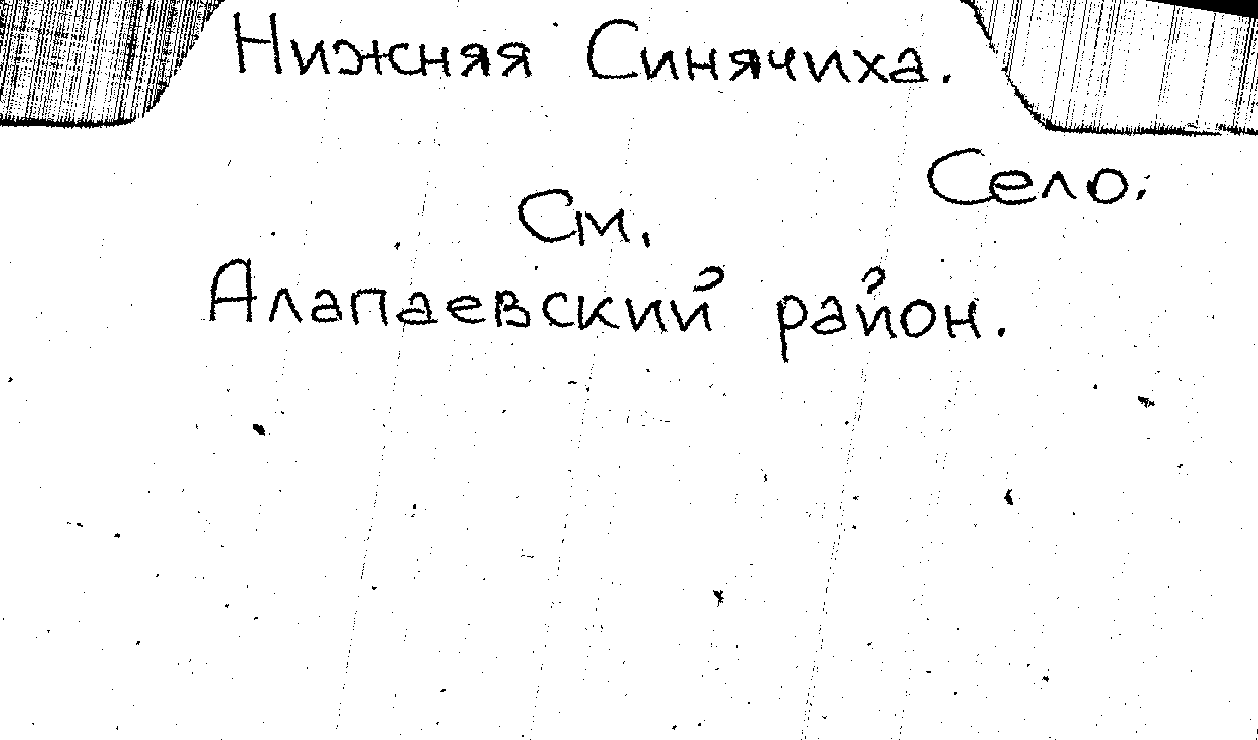 Нижняя Синячиха.
Село.
См.
Алапаевский район.